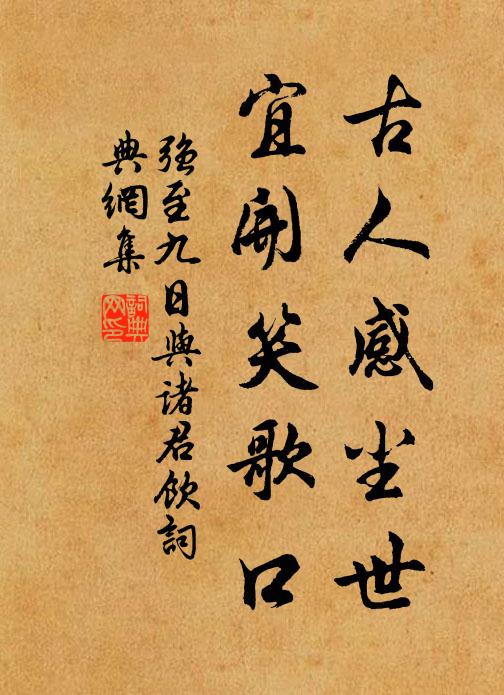 古人感尘世
宜開笑歌口
強至九日與諸君飲詞
典網集
詞典網印